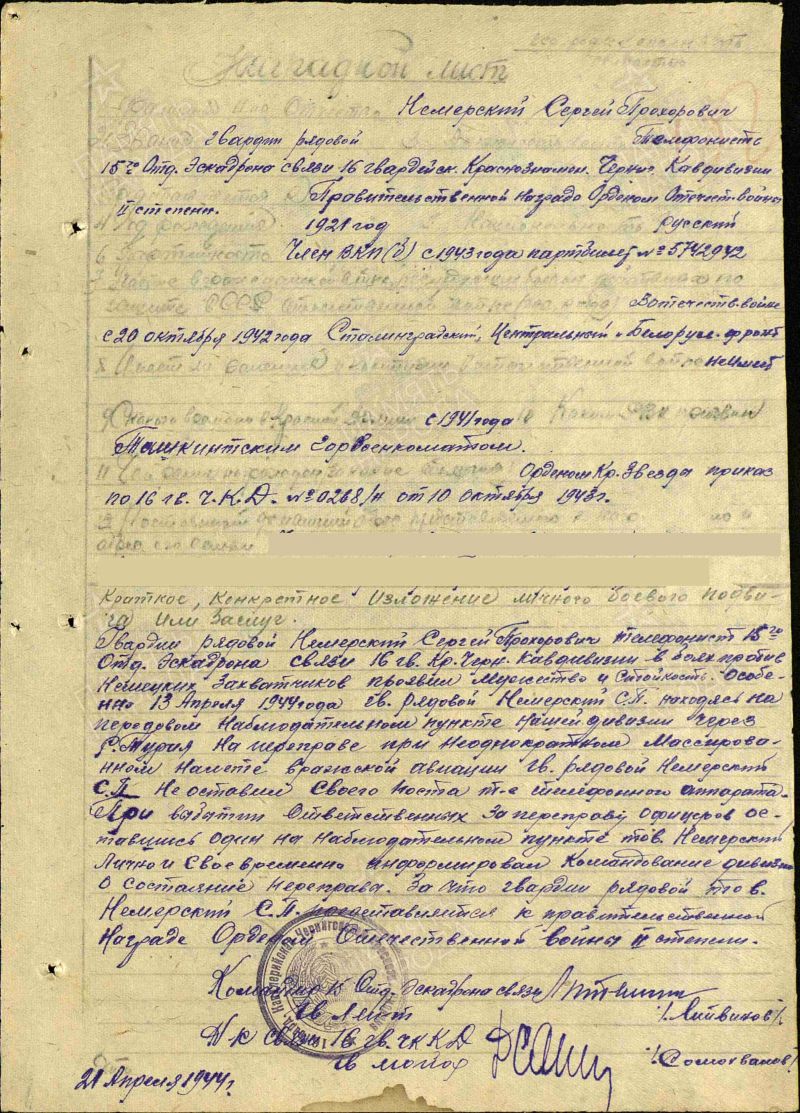 Наградной лист
Фамилия Имя Отчество Немерский Сергей Прохорович
2 Звание гвардии рядовой Телефонисть
15го Отд. Эскадрона связи 16 гвардейск. Краснознамен. Черниг. Кавдивизии
Правительственной Награде Орденом Отечест. войны
II степени.
4 Год рождения 1921 год русский
6 Партийность Член ВКП(б) с 1943 года партбилет № 5742942
7 Участие в гражданской
защите СССР отечественной Вотечеств. войне
с 20 октября 1942 года Сталинградский, Центральный и Белорус. фронт
8 Имеет ли ранения и контузии в отечественной войне не имеет
9 С какого времени в Красной Армии с 1941 года 10 Каким РВК призван
Ташкинтским Горвоенкоматом.
Орденом Кр. Звезда приказ
по 16 гв. Ч.К.Д. № 0268/н от 10 октября 1943г.
12 Постоянный домашний адрес
адрес его семьи
Краткое, конкретное изложение личного боевого подви-
га или заслуг.
Гвардии рядовой Немерский Сергей Прохорович телефонист 15го
Отд. Эскадрона связи 16 гв. Кр. Черн. Кавдивизии в боях против
Немецких Захватчиков проявил мужество и Стойкость. Особе-
нно 13 Апреля 1944 года гв. рядовой Немерский С.П. находясь на
передовом Наблюдательном пункте нашей дивизии через
р. Турия на переправе при неоднократном Массирова-
нном налете вражской авиации гв. рядовой Немерский
С.П. Не оставил Своего поста т-е телефонного аппарата.
При выбытии Ответственных За переправу офицеров ос-
тавшись один на наблюдательном пункте тов. Немерский
Лично и Своевременно информировал Командование дивизии
о состояние переправа. За что гвардии рядовой тов.
Немерский С.П. представляется к правительственной
Награде Орденом Отечественной войны II степени.
Командир 15 Отд. Эскадрона связи
гв Лейт /Литвинов/
Н-к связи 16 гв. чк КД
гв майор /Самохвалов/
21 Апреля 1944г.